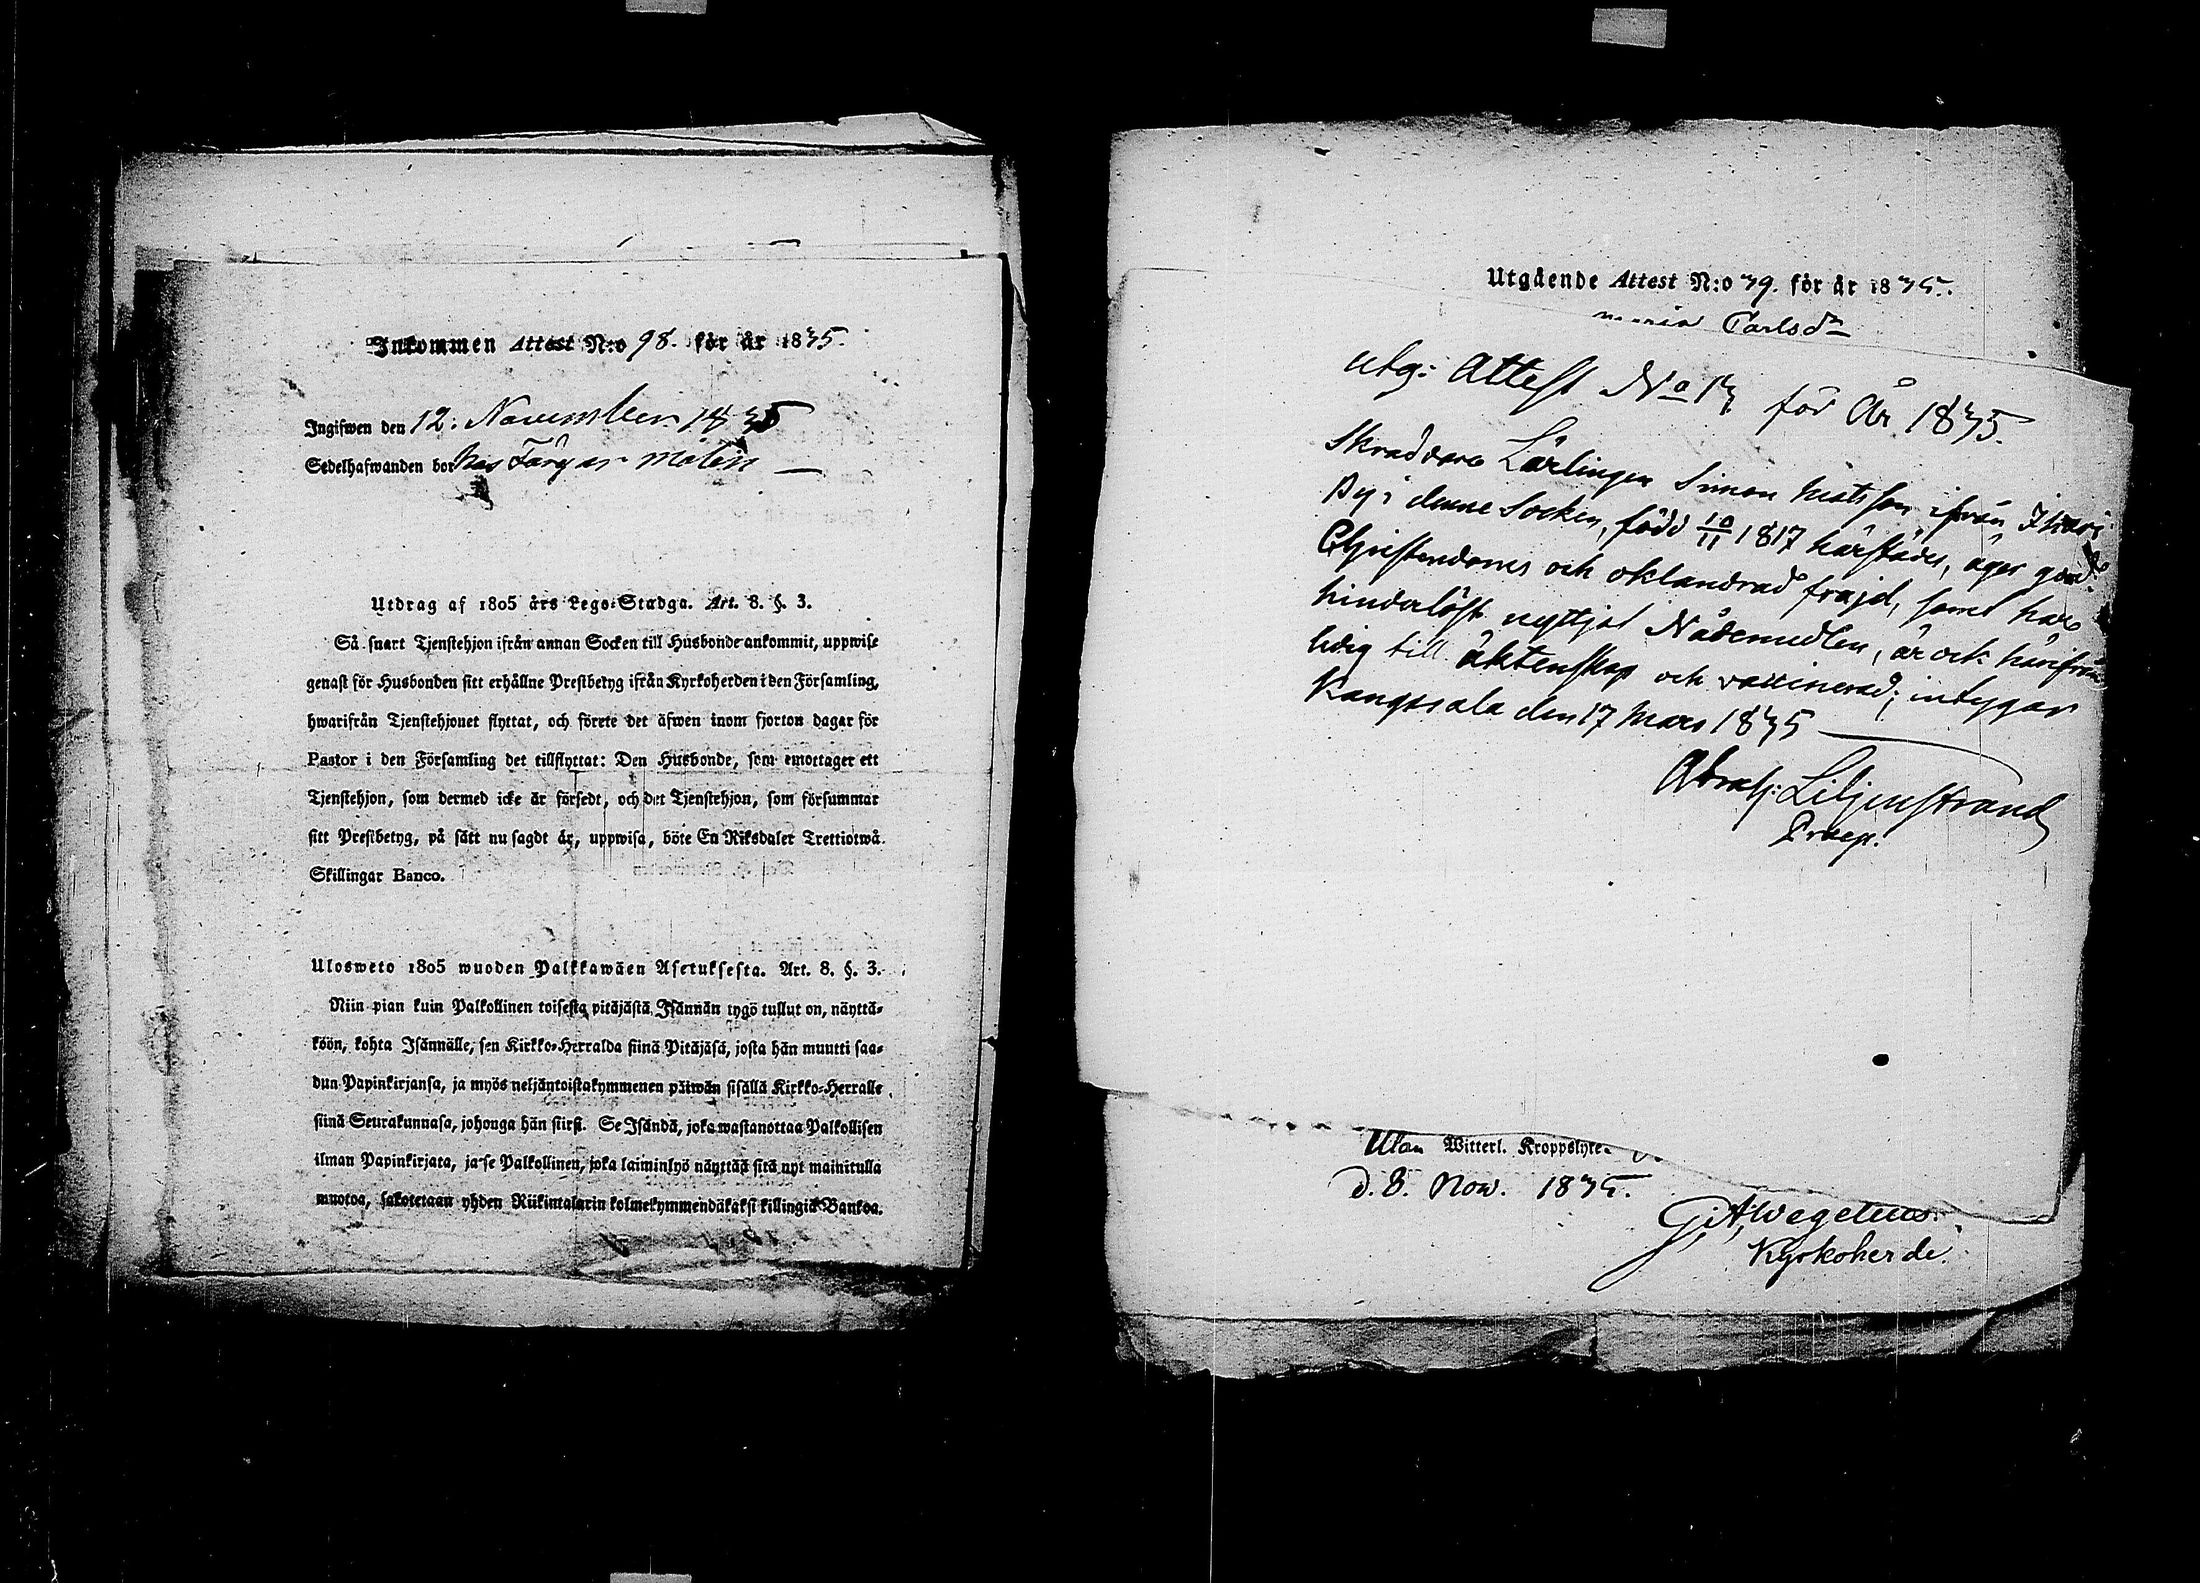 Inkommen Attest N:o 98. för år 1835.
Ingifwen den 12. November 1835
Sedelhafwanden bor hos Färgar Molin —
Utdrag af 1805 års Lego-Stadga. Art. 8. §. 3.
Så snart Tjenstehjon ifrån annan Socken till Husbonde ankommit, uppwise
genast för Husbonden sitt erhållne Prestbetyg ifrån Kyrkoherden i den Församling,
hwarifrån Tjenstehjonet flyttat, och förete det äfwen inom fjorton dagar för
Pastor i den Församling det tillflyttat: Den Husbonde, som emottager ett
Tjenstehjon, som dermed icke är försedt, och det Tjenstehjon, som försummar
sitt Prestbetyg, på sätt nu sagdt är, uppwisa, böte En Riksdaler Trettiotwå
Skillingar Banco.
Ulosweto 1805 wuoden Palkkawäen Asetuksesta. Art. 8. §. 3.
Niin pian kuin Palkollinen toisesta pitäjästä Isännän tygö tullut on, näyttä-
köön, kohta Isännälle, sen Kirkko-Herralda siinä Pitäjäsä, josta hän muutti saa-
dun Papinkirjansa, ja myös neljäntoistakymmenen päiwän sisällä Kirkko-Herralle
siinä Seurakunnasa, johonga hän siirsi. Se Isändä, joka wastanottaa Palkollisen
ilman Papinkirjata, ja se Palkollinen, joka laiminlyö näyttää sitä nyt mainitulla
muotoa, sakotetaan yhden Riikintalarin kolmekymmendäkaksi killingiä Bankoa.
Utgående Attest N:o 39. för år 1835.
Maria Carlsdr
Utg: Attest No 13 för År 1835.
Skraddare Lärlingen Simon Matsson ifrån
By i denne Socken, född 10/11 1817 härstädes, äger god
Christendoms och oklandrad frajd, samt har
hinderlöst nyttjat Nådemedlen, är ock härifrån
ledig till äktenskap och vaccinerad; intygar
Kangasala den 17 Mars 1835
Abrah: Liljenstrand
Praep.
Utan Witterl. Kroppslyte.
d. 8. Nov. 1835.
G: A, Wegelius.
Kyrkoherde.